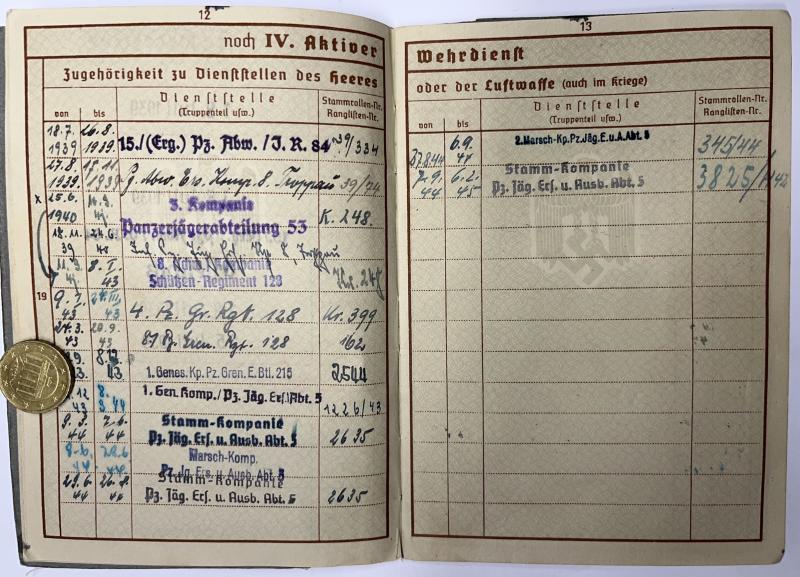 12
noch IV. Aktiver
Zugehörigkeit zu Dienststellen des Heeres
von
bis
Dienststelle
(Truppenteil usw.)
Stammrollen-Nr.
Ranglisten-Nr.
18.7. 26.8.
1939 1939
15./(Erg.) Pz. Abw. / J. R. 84
39/334
27.8.
1939 1939
Troppau 39/74
x 25.6.
1940
3. Kompanie
Panzerjägerabteilung 53
K. 248.
18.11. 24.6.
39 40
8. I.
43
8. (Schw.) Kompanie
Schützen-Regiment 128
19
9. I.
43 43
4. Pz. Gr. Rgt. 128
Kr. 399
21.3. 20.9.
43 43
8/ Pz. Gren. Rgt. 128
162
43
1. Genes. Kp. Pz. Gren. E. Btl. 215
2544
12 8.
43 3.44
1. Gen. Komp./Pz. Jäg. Ers./Abt. 5
1226/43
9.3. 7.6.
44 44
Stamm-Kompanie
Pz. Jäg. Ers. u. Ausb. Abt. 5
2635
8.6.
44 44
Marsch-Komp.
Pz. Jg. Ers. u. Ausb. Abt. 5
29.6. 26.8.
44 44
Stamm-Kompanie
Pz. Jäg. Ers. u. Ausb. Abt. 5
2635
13
Wehrdienst
oder der Luftwaffe (auch im Kriege)
von
bis
Dienststelle
(Truppenteil usw.)
Stammrollen-Nr.
Ranglisten-Nr.
27.8.44 6.9.
44
2. Marsch-Kp. Pz. Jäg. E. u. A. Abt. 5
345/44
7.9. 6.2.
44 45
Stamm-Kompanie
Pz. Jäg. Ers. u. Ausb. Abt. 5
3825/